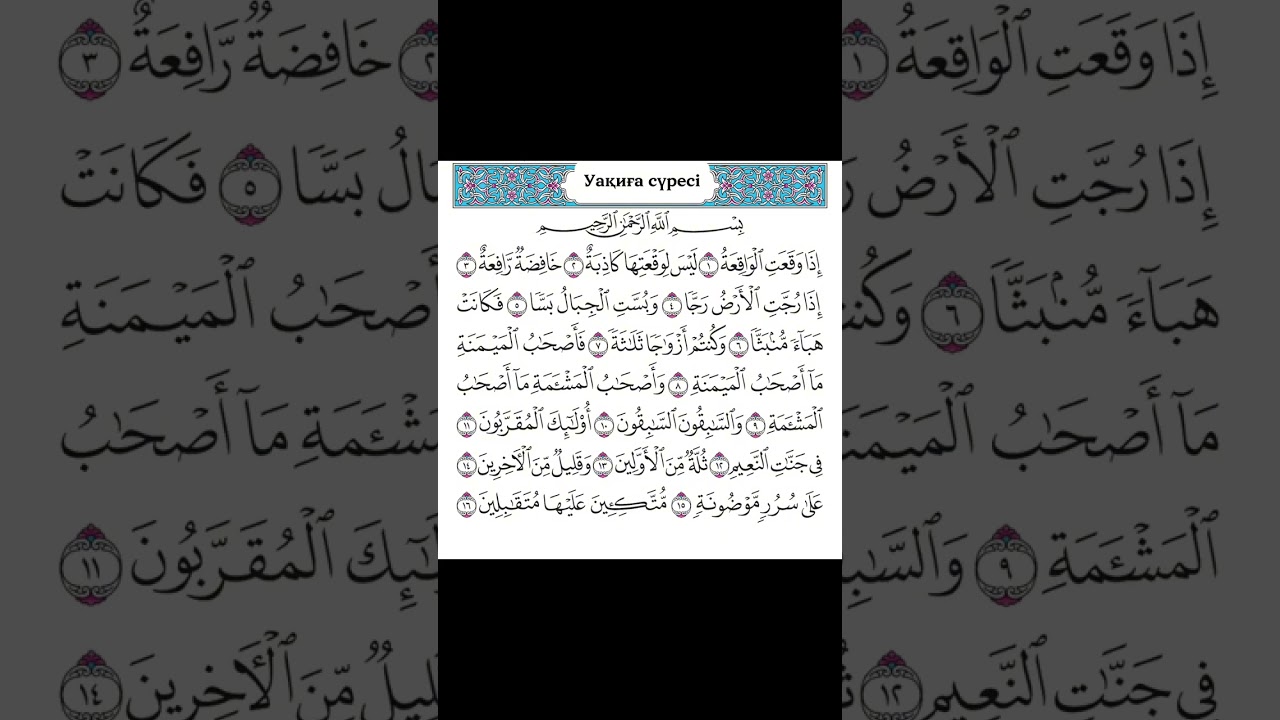 Уақиға сүресі
بِسْمِ ٱللَّهِ ٱلرَّحْمَٰنِ ٱلرَّحِيمِ
إِذَا وَقَعَتِ ٱلْوَاقِعَةُ ١ لَيْسَ لِوَقْعَتِهَا كَاذِبَةٌ ٢ خَافِضَةٌ رَّافِعَةٌ ٣
إِذَا رُجَّتِ ٱلْأَرْضُ رَجًّا ٤ وَبُسَّتِ ٱلْجِبَالُ بَسًّا ٥ فَكَانَتْ
هَبَآءً مُّنۢبَثًّا ٦ وَكُنتُمْ أَزْوَٰجًا ثَلَٰثَةً ٧ فَأَصْحَٰبُ ٱلْمَيْمَنَةِ
مَآ أَصْحَٰبُ ٱلْمَيْمَنَةِ ٨ وَأَصْحَٰبُ ٱلْمَشْـَٔمَةِ مَآ أَصْحَٰبُ
ٱلْمَشْـَٔمَةِ ٩ وَٱلسَّٰبِقُونَ ٱلسَّٰبِقُونَ ١٠ أُو۟لَٰٓئِكَ ٱلْمُقَرَّبُونَ ١١
فِى جَنَّٰتِ ٱلنَّعِيمِ ١٢ ثُلَّةٌ مِّنَ ٱلْأَوَّلِينَ ١٣ وَقَلِيلٌ مِّنَ ٱلْـَٔاخِرِينَ ١٤
عَلَىٰ سُرُرٍ مَّوْضُونَةٍ ١٥ مُّتَّكِـِٔينَ عَلَيْهَا مُتَقَٰبِلِينَ ١٦